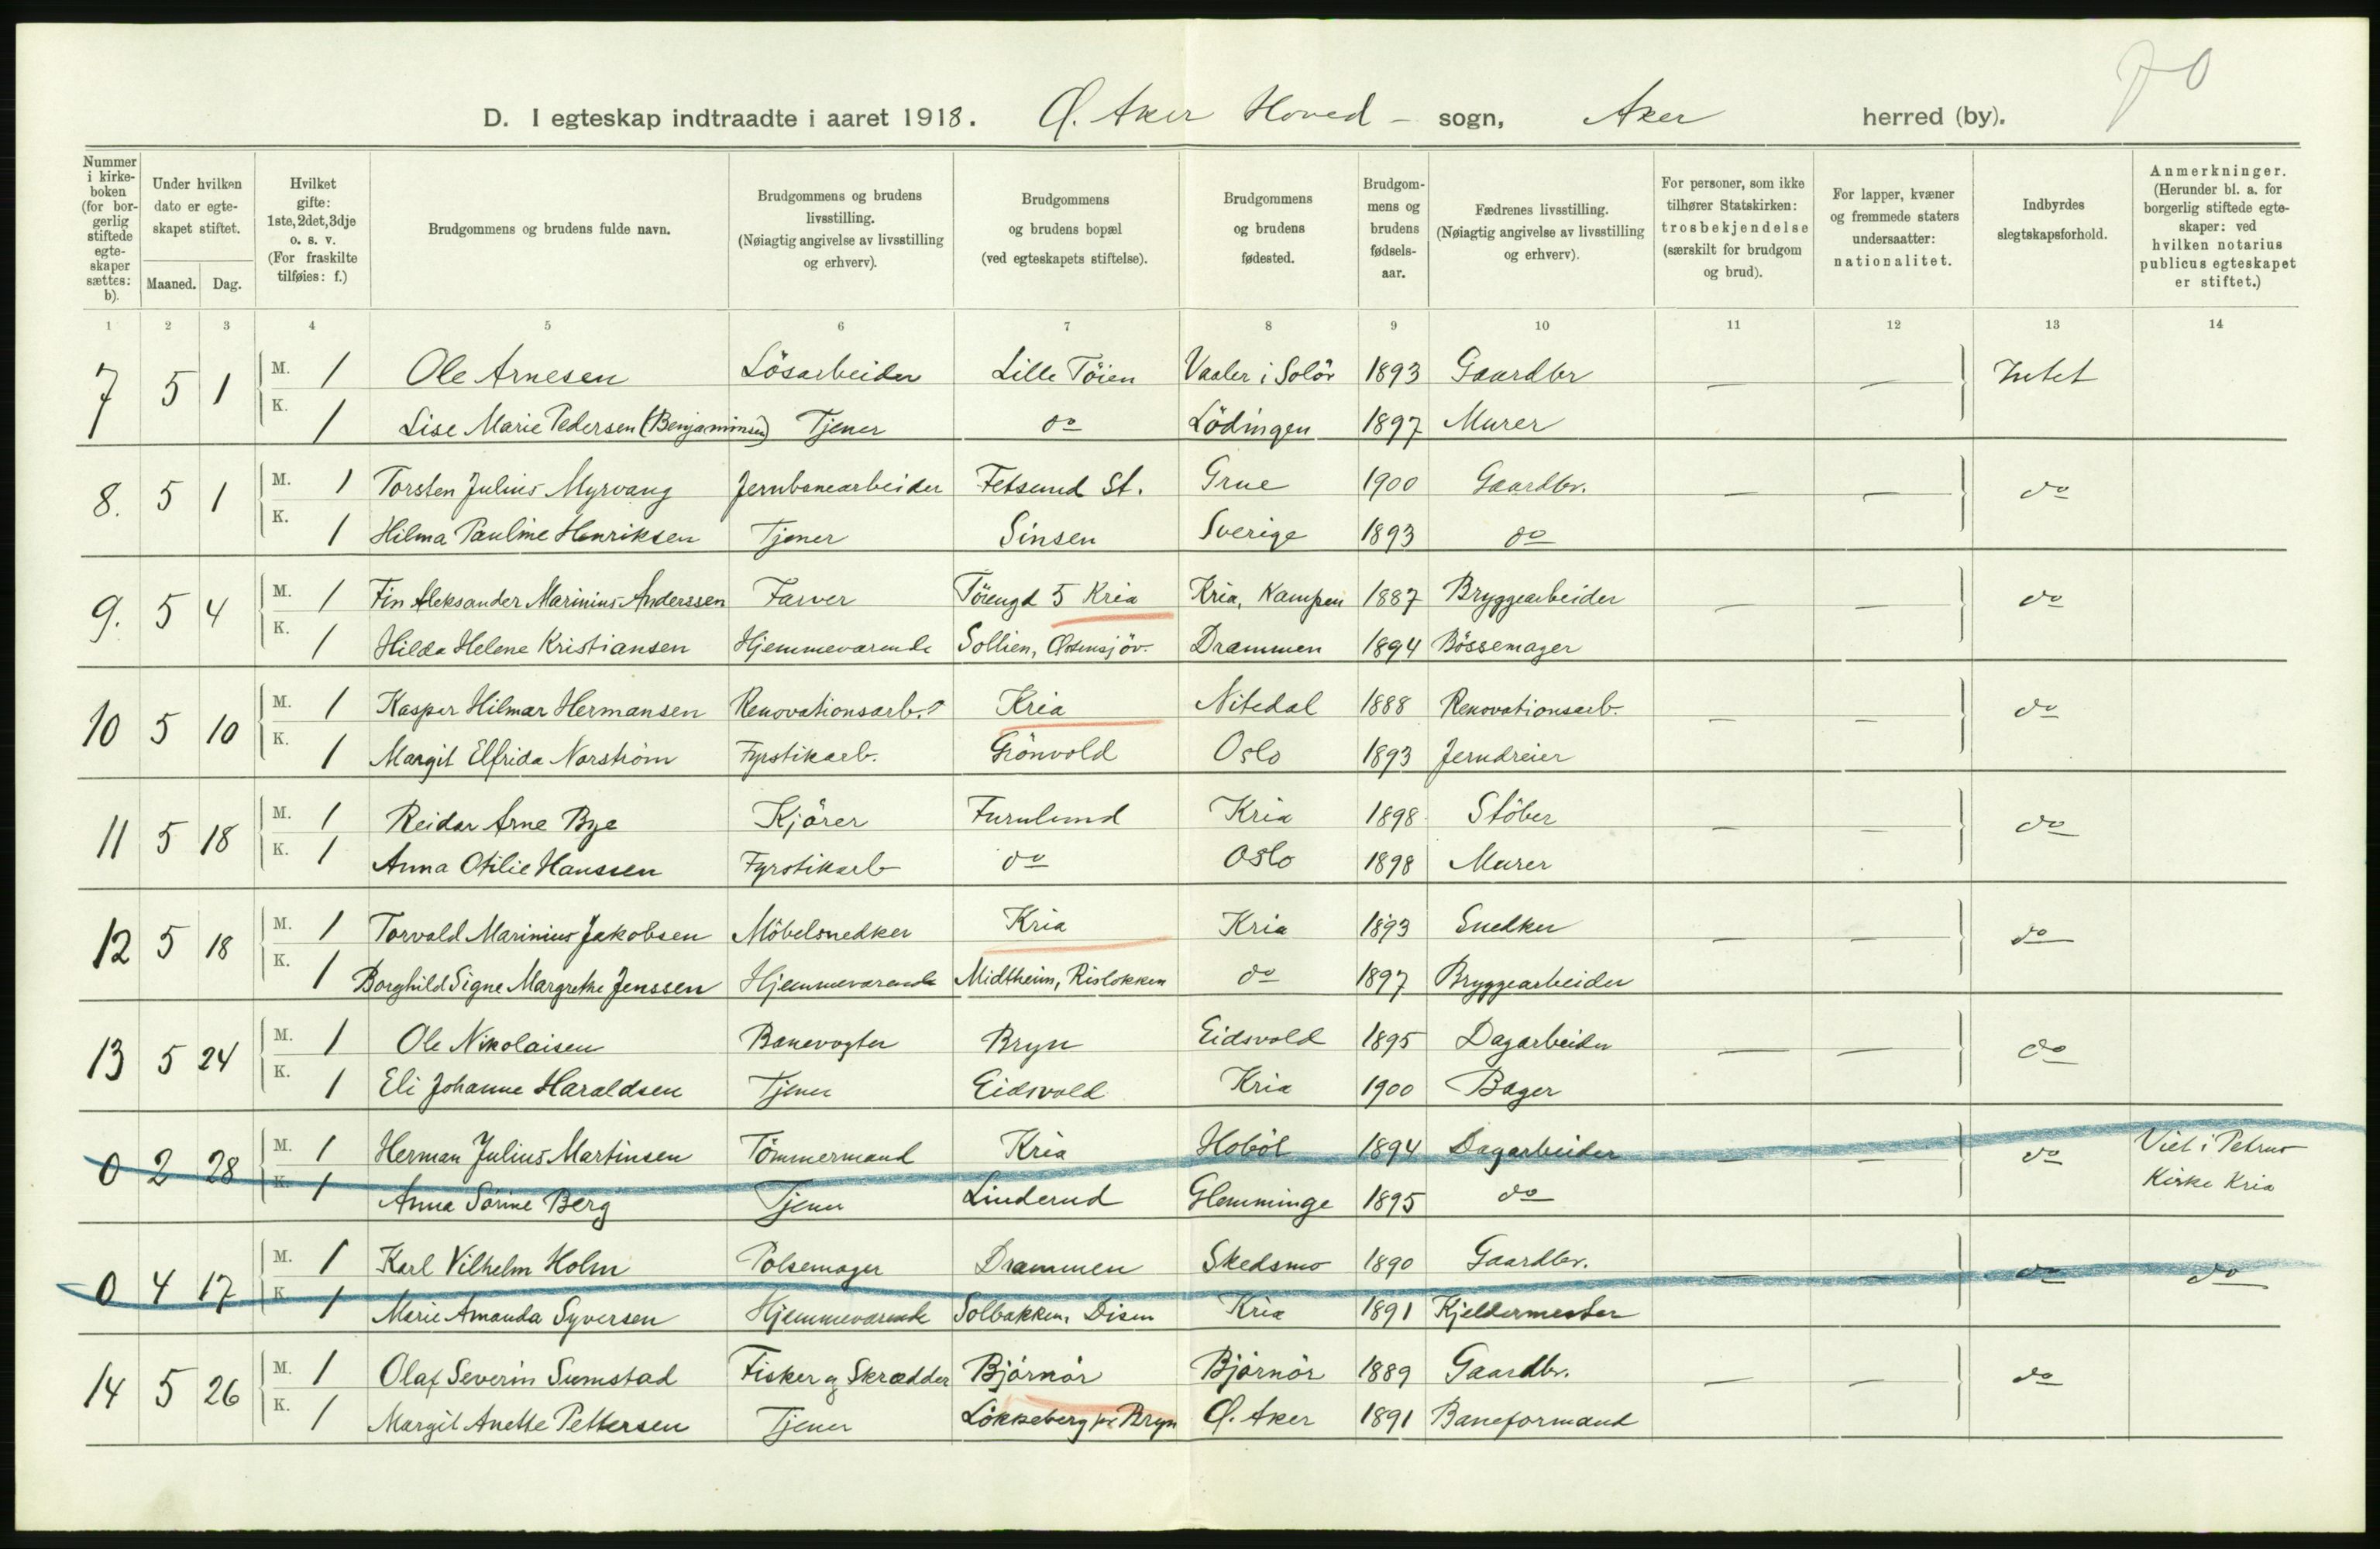 70
D. I egteskap indtraadte i aaret 1918. Ø. Aker Hoved - sogn, Aker herred (by).
Nummer i kirkeboken (for borgerlig stiftede egteskaper sættes: b).
Under hvilken dato er egteskapet stiftet.
Maaned. Dag.
Hvilket gifte: 1ste, 2det, 3dje o. s. v. (For fraskilte tilføies: f.)
Brudgommens og brudens fulde navn.
Brudgommens og brudens livsstilling. (Nøiagtig angivelse av livsstilling og erhverv).
Brudgommens og brudens bopæl (ved egteskapets stiftelse).
Brudgommens og brudens fødested.
Brudgommens og brudens fødselsaar.
Fædrenes livsstilling. (Nøiagtig angivelse av livsstilling og erhverv).
For personer, som ikke tilhører Statskirken: trosbekjendelse (særskilt for brudgom og brud).
For lapper, kvæner og fremmede staters undersaatter: nationalitet.
Indbyrdes slegtskapsforhold.
Anmerkninger. (Herunder bl. a. for borgerlig stiftede egteskaper: ved hvilken notarius publicus egteskapet er stiftet.)
1 2 3 4 5 6 7 8 9 10 11 12 13 14
7 5 1 M. 1 Ole Arnesen Lösarbeider Lille Töien Vaaler i Solör 1893 Gaardbr — — Intet
K. 1 Lise Marie Pedersen (Benjaminsen) Tjener do Lödingen 1897 Murer
8. 5 1 M. 1 Torsten Julius Myrvang Jernbanearbeider Fetsund St. Grue 1900 Gaardbr. — — do
K. 1 Hilma Pauline Henriksen Tjener Sinsen Sverige 1893 do
9. 5 4 M. 1 Fin Aleksander Marinius Anderssen Farver Töiengt 5 Kria Kria, Kampen 1887 Bryggearbeider — — do
K. 1 Hilda Helene Kristiansen Hjemmeværende Sollien, Østensjöv. Drammen 1894 Bössemager
10 5 10 M. 1 Kasper Hilmar Hermansen Renovationsarb. Kria Nitedal 1888 Renovationsarb. — — do
K. 1 Margit Elfrida Norström Fyrstikarb. Grönvold Oslo 1893 Jerndreier
11 5 18 M. 1 Reidar Arne Bye Kjörer Furulund Kria 1898 Stöber — — do
K. 1 Anna Otilie Hanssen Fyrstikarb do Oslo 1898 Murer
12 5 18 M. 1 Torvald Marinius Jakobsen Möbelsnedker Kria Kria 1893 Snedker — — do
K. 1 Borghild Signe Margrethe Jenssen Hjemmeværende Midtheim, Rislökken do 1897 Bryggearbeider
13 5 24 M. 1 Ole Nikolaisen Banevogter Bryn Eidsvold 1895 Dagarbeider — — do
K. 1 Eli Johanne Haraldsen Tjener Eidsvold Kria 1900 Bager
0 2 28 M. 1 Herman Julius Martinsen Tömmermand Kria Hoböl 1894 Dagarbeider — — do Viet i Petrus
K. 1 Anna Sörine Berg Tjener Linderud Glemminge 1895 do Kirke Kria
0 4 17 M. 1 Karl Vilhelm Holm Pölsemager Drammen Skedsmo 1890 Gaardbr. — — do do
K. 1 Marie Amanda Syversen Hjemmeværende Solbakken, Disen Kria 1891 Kjeldermester
14 5 26 M. 1 Olaf Severin Sumstad Fisker og Skrædder Björnör Björnör 1889 Gaardbr. — — do
K. 1 Margit Anette Pettersen Tjener Lökkeberg pr Bryn Ø. Aker 1891 Baneformand